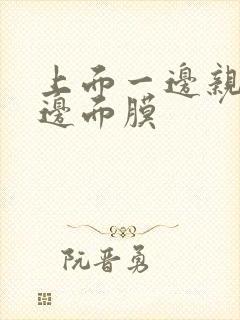 上而一邊親
邊而膜
阮晋勇